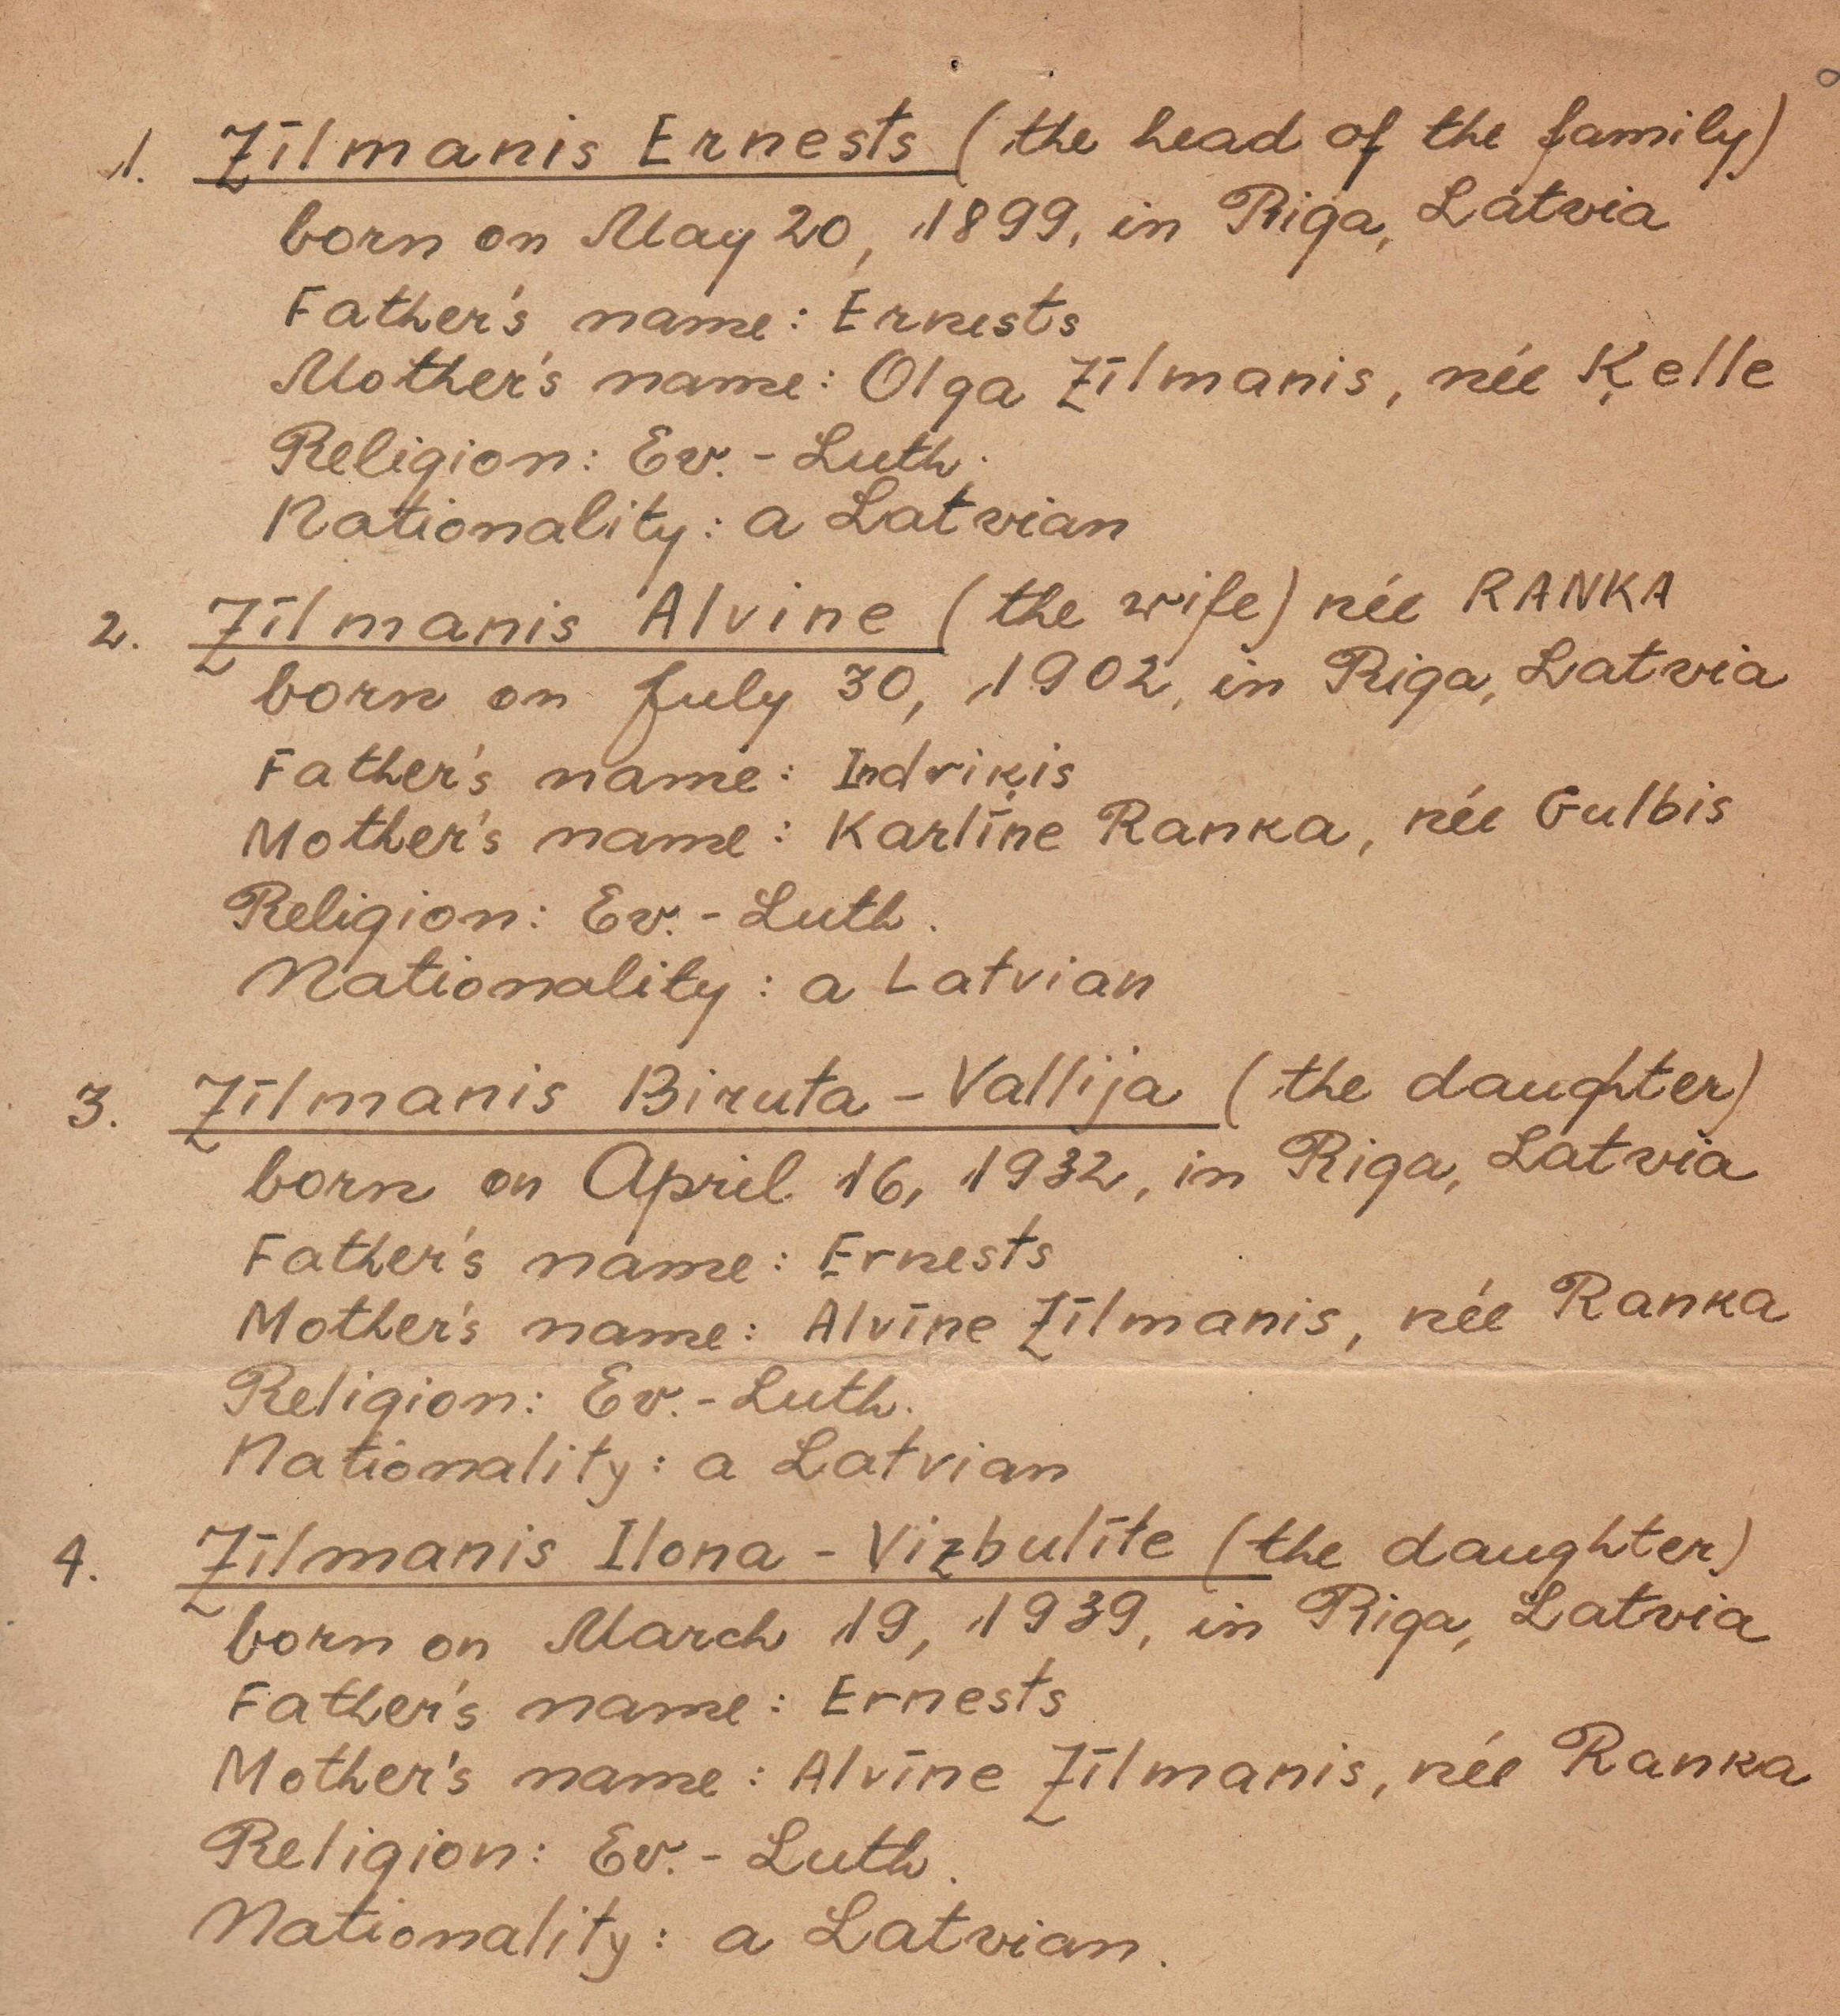 1. Zīlmanis Ernests (the head of the family)
born on May 20, 1899, in Riga, Latvia
Father's name: Ernests
Mother's name: Olga Zīlmanis, née Ķelle
Religion: Ev.-Luth.
Nationality: a Latvian
2. Zīlmanis Alvine (the wife) née RANKA
born on July 30, 1902, in Riga, Latvia
Father's name: Indriķis
Mother's name: Karlīne Ranka, née Gulbis
Religion: Ev.-Luth.
Nationality: a Latvian
3. Zīlmanis Biruta-Vallija (the daughter)
born on April 16, 1932, in Riga, Latvia
Father's name: Ernests
Mother's name: Alvīne Zīlmanis, née Ranka
Religion: Ev.-Luth.
Nationality: a Latvian
4. Zīlmanis Ilona-Vizbulīte (the daughter)
born on March 19, 1939, in Riga, Latvia
Father's name: Ernests
Mother's name: Alvīne Zīlmanis, née Ranka
Religion: Ev.-Luth.
Nationality: a Latvian.